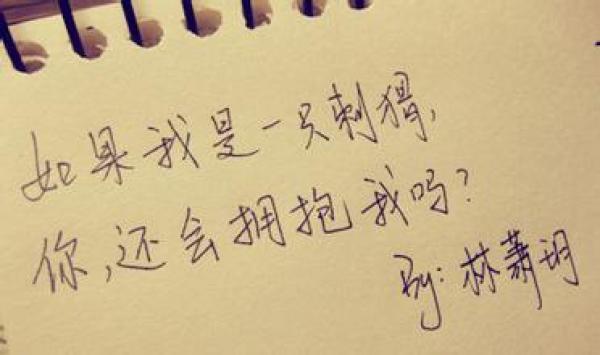 如果我是一只刺猬,
你,还会拥抱我吗?
By: 林萧玥